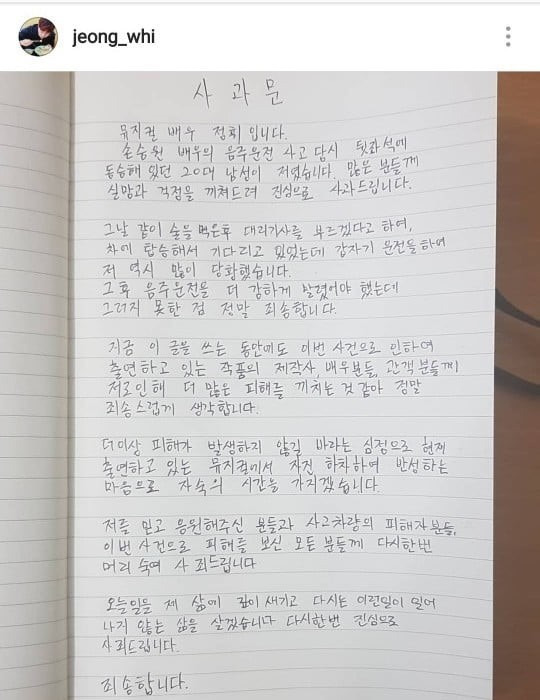 jeong_whi
사 과 문
뮤지컬 배우 정휘 입니다.
손승원 배우의 음주운전 사고 당시 뒷좌석에
동승해 있던 20대 남성이 저였습니다. 많은 분들께
실망과 걱정을 끼쳐드려 진심으로 사과드립니다.
그날 같이 술을 먹은후 대리기사를 부르겠다고 하여,
차에 탑승해서 기다리고 있었는데 갑자기 운전을 하여
저 역시 많이 당황했습니다.
그후 음주운전을 더 강하게 말렸어야 했는데
그러지 못한 점 정말 죄송합니다.
지금 이 글을 쓰는 동안에도 이번 사건으로 인하여
출연하고 있는 작품의 제작사, 배우분들, 관객 분들께
저로인해 더 많은 피해를 끼치는 것 같아 정말
죄송스럽게 생각합니다.
더이상 피해가 발생하지 않길 바라는 심정으로 현재
출연하고 있는 뮤지컬에서 자진 하차하여 반성하는
마음으로 자숙의 시간을 가지겠습니다.
저를 믿고 응원해주신 분들과 사고차량의 피해자분들,
이번 사건으로 피해를 보신 모든 분들께 다시한번
머리 숙여 사죄드립니다
오늘일을 제 삶에 깊이 새기고 다시는 이런일이 일어
나지 않는 삶을 살겠습니다 다시한번 진심으로
사죄드립니다.
죄송합니다.